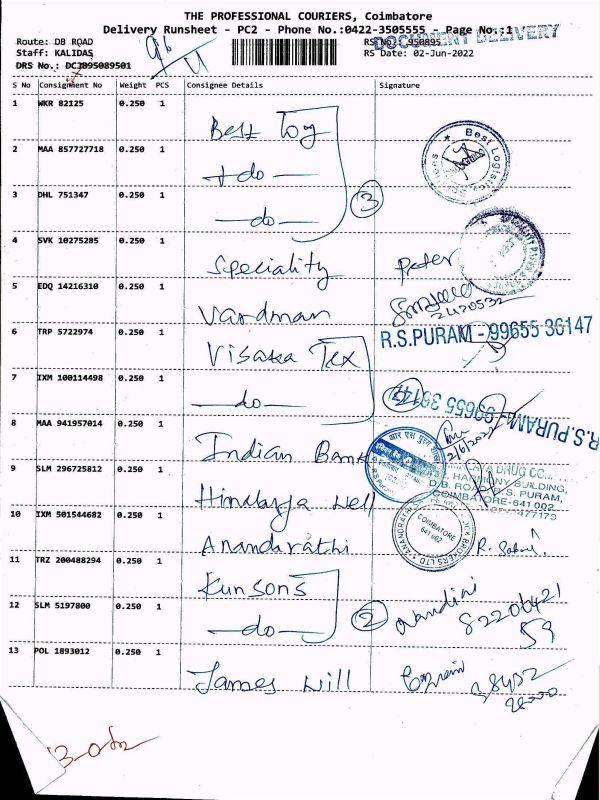 THE PROFESSIONAL COURIERS, Coimbatore
Delivery Runsheet - PC2 - Phone No.:0422-3505555 Page No.:1
DOCUMENT DELIVERY
Route: DB ROAD
RS No.: 950895
Staff: KALIDAS
RS Date: 02-Jun-2022
DRS No.: DCJ895089501
S No Consignment No Weight PCS Consignee Details Signature
1 WKR 82125 0.250 1
Best Log
2 MAA 857727718 0.250 1
- do -
3 DHL 751347 0.250 1
- do -
3
Best Logistics
4 SVK 10275285 0.250 1
Speciality Peter
5 EDQ 14216310 0.250 1
Vardman
6 TRP 5722974 0.250 1
R.S.PURAM - 99655 36147
Visaka Tex
7 IXM 100114498 0.250 1
- do -
R.S.PURAM - 99655 36147
8 MAA 941957014 0.250 1
2/6/2022
Indian Bank
9 SLM 296725812 0.250 1
DRUG CO.
HARMONY BUILDING,
D.B. ROAD, R.S. PURAM,
COIMBATORE-641 002
Himalaya Well
10 IXM 501544682 0.250 1
COIMBATORE
641 002
Anandarathi
11 TRZ 200488294 0.250 1
Kunsons
12 SLM 5197800 0.250 1
- do -
2
Nandini
13 POL 1893012 0.250 1
James Will